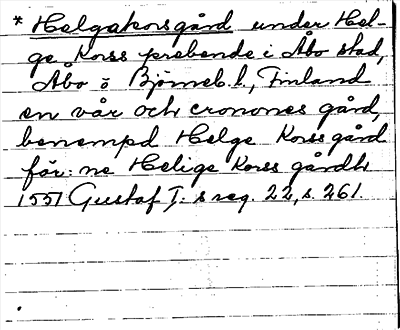 * Helgakorsgård under Hel-
ge Korss prebende i Åbo stad,
Åbo o Björneb. l., Finland
en vår och cronones gård,
benempd Helge Korssgård
för: ne Helige Korss gårdh
1551 Gustaf I: s reg. 22, s. 261.